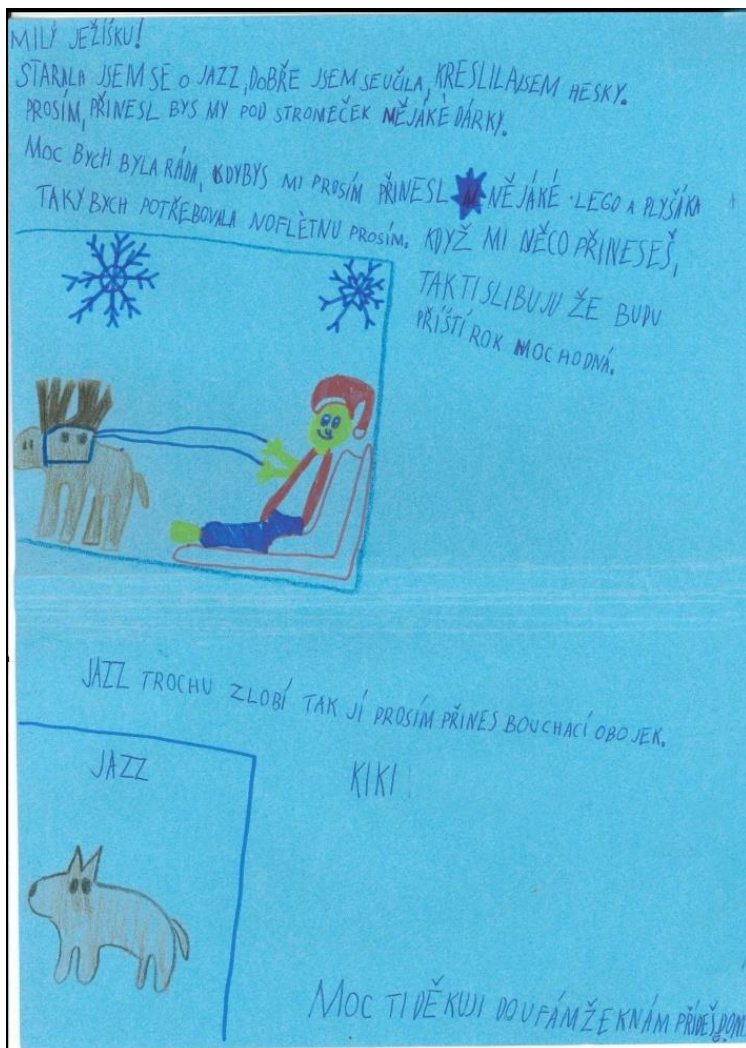 MILÝ JEŽÍŠKU!
STARALA JSEM SE O JAZZ, DOBŘE JSEM SE UČILA, KRESLILA JSEM HESKY.
PROSÍM, PŘINESL BYS MY POD STROMEČEK NĚJÁKÉ DÁRKY.
MOC BYCH BYLA RÁDA, KDYBYS MI PROSÍM PŘINESL NĚJÁKÉ LEGO A PLYŠÁKA
TAKY BYCH POTŘEBOVALA NOFLÈTNU PROSÍM. KDYŽ MI NĚCO PŘINESEŠ,
TAK TI SLIBUJU ŽE BUDU
PŘÍŠTÍ ROK MOC HODNÁ.
JAZZ TROCHU ZLOBÍ TAK JÍ PROSÍM PŘINES BOUCHACÍ OBOJEK.
JAZZ
KIKI
MOC TI DĚKUJI DOUFÁM ŽE K NÁM PŘÍDEŠ